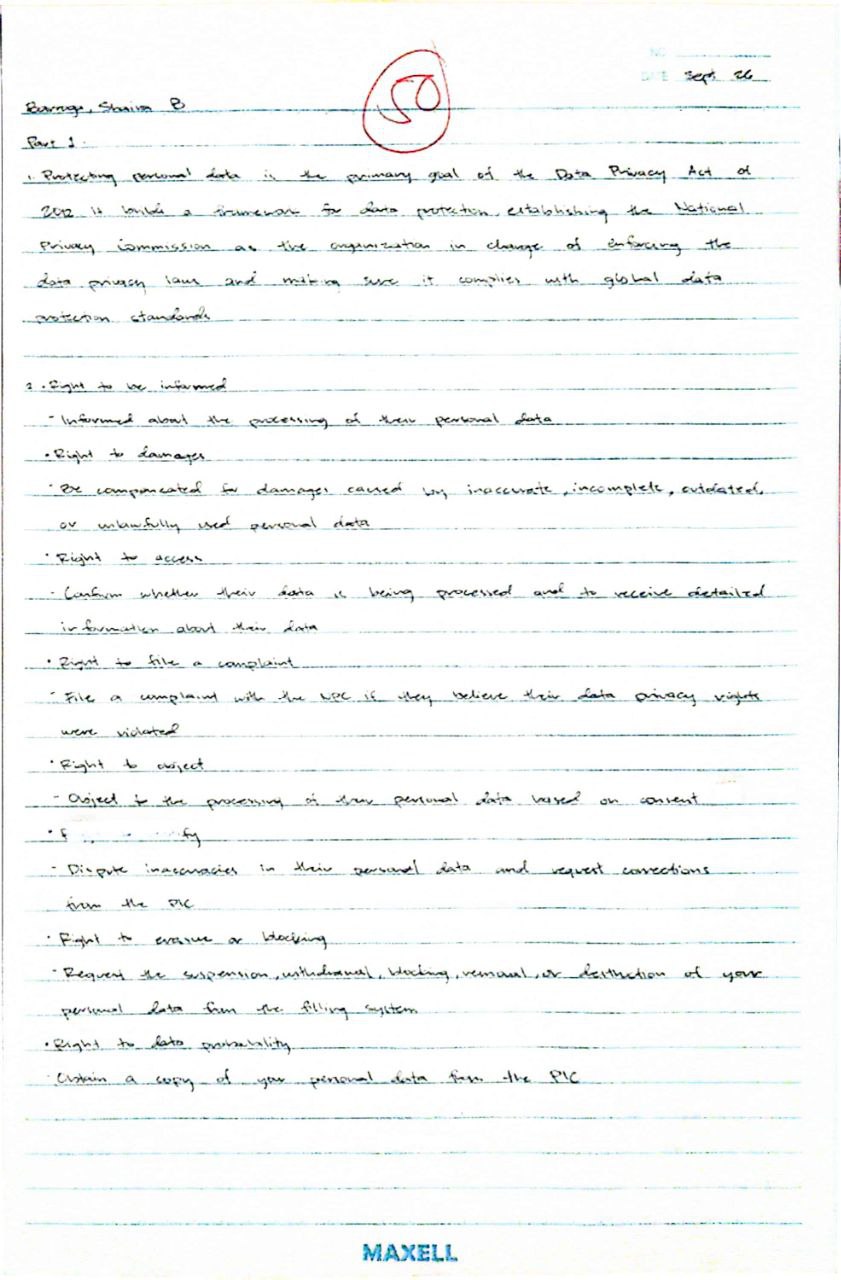 NO.
DATE Sept 26
50
Shaira B
Part 1.
1. Protecting personal data is the primary goal of the Data Privacy Act of
2012. It builds a framework for data protection, establishing the National
Privacy Commission as the organization in charge of enforcing the
data privacy laws and making sure it complies with global data
protection standards
2. Right to be informed
- Informed about the processing of their personal data
• Right to damages
- Be compensated for damages caused by inaccurate, incomplete, outdated,
or unlawfully used personal data
• Right to access
- Confirm whether their data is being processed and to receive detailed
information about their data
• Right to file a complaint
- File a complaint with the NPC if they believe their data privacy rights
were violated
• Right to object
- Object to the processing of their personal data based on consent
- Dispute inaccuracies in their personal data and request corrections
from the PIC
• Right to erasure or blocking
- Request the suspension, withdrawal, blocking, removal, or destruction of your
personal data from the filling system
• Right to data probability
- Obtain a copy of your personal data from the PIC
MAXELL